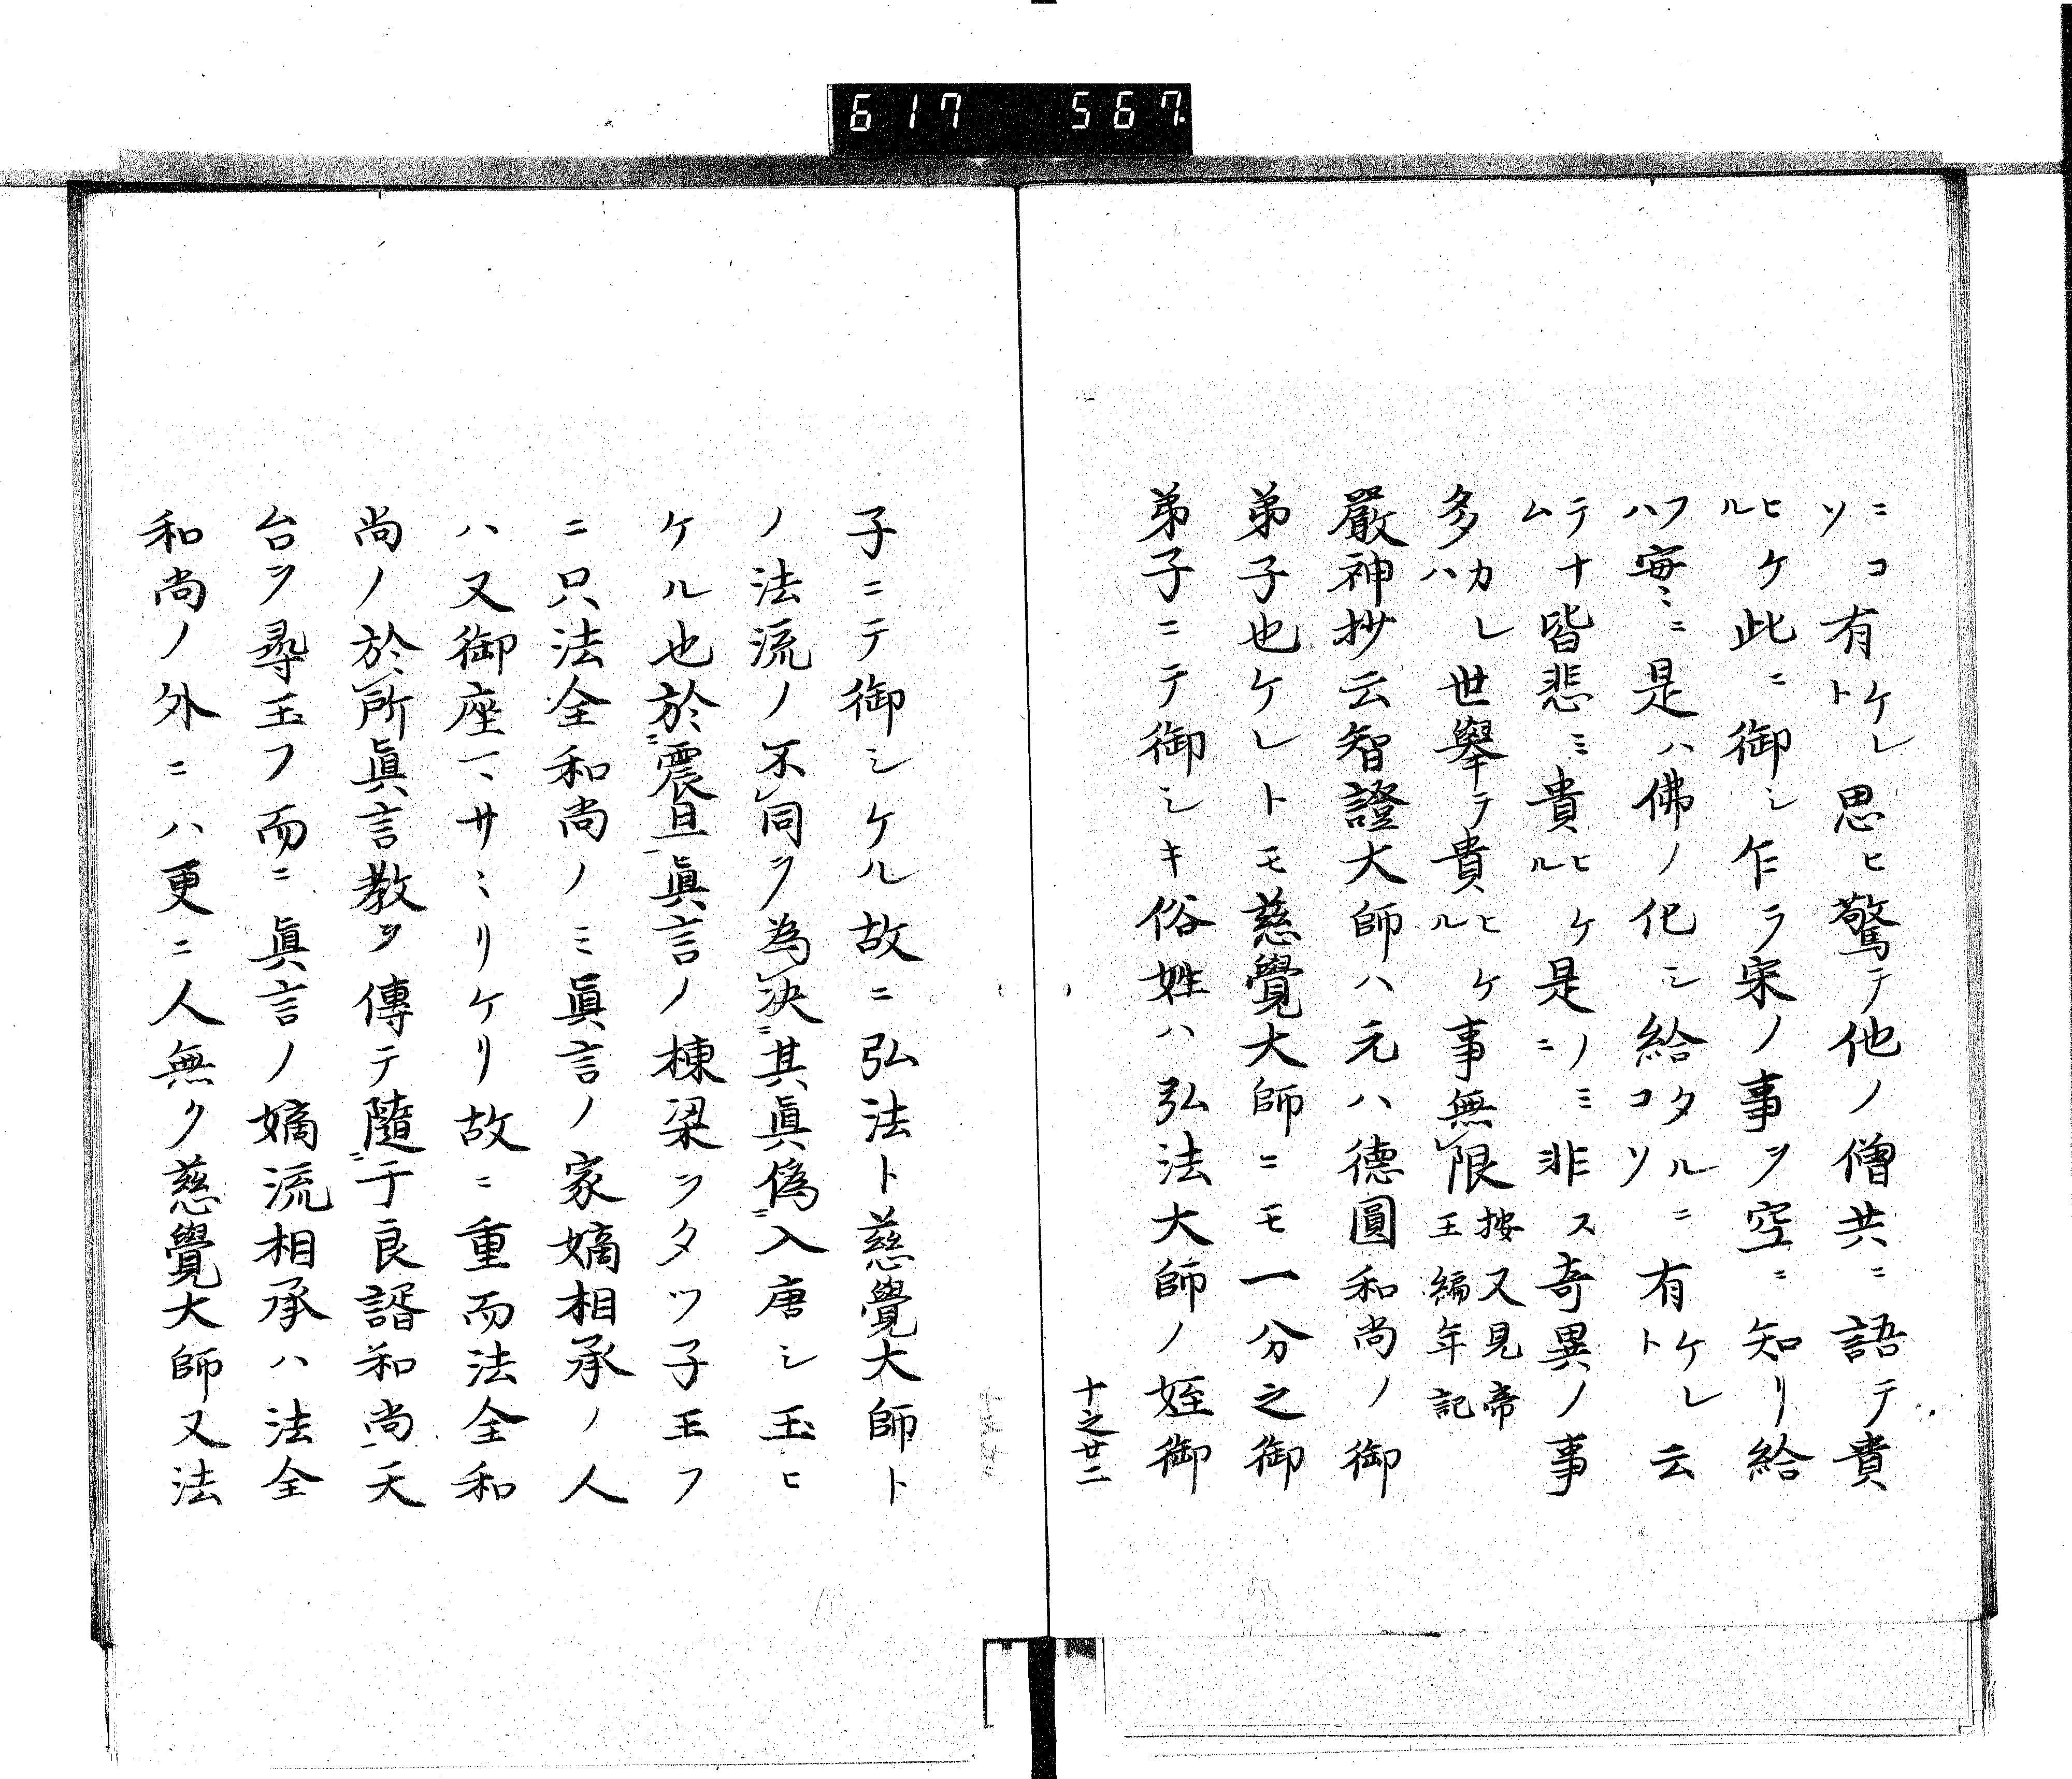 617 567
ニコソ有ケレト思ヒ驚テ他ノ僧共ニ語テ貴
ヒケル此ニ御シ乍ラ宋ノ事ヲ空ニ知リ給
フハ寔ミニ是ハ佛ノ化シ給タルニコソ有ケレト云
テナム皆悲ミ貴ヒケル是ニノミ非ス奇異ノ事
多カレハ世擧テ貴ヒケル事無レ限按又見帝王編年記
嚴神抄云智證大師ハ元ハ德圓和尚ノ御
弟子也ケレトモ慈覺大師ニモ一分之御
弟子ニテ御シキ俗姓ハ弘法大師ノ姪御
十之廿二
子ニテ御シケル故ニ弘法ト慈覺大師ト
ノ法流ノ不レ同ヲ為レ決二其眞偽一入唐シ玉ヒ
ケル也於二震旦一眞言ノ棟梁ヲタツ子玉フ
ニ只法全和尚ノミ眞言ノ家嫡相承ノ人
ハ又御座マサミリケリ故ニ重而法全和
尚ノ於レ所眞言教ヲ傳テ隨二于良諝和尚一天
台ヲ尋玉フ而ニ眞言ノ嫡流相承ハ法全
和尚ノ外ニハ更ニ人無ク慈覺大師又法